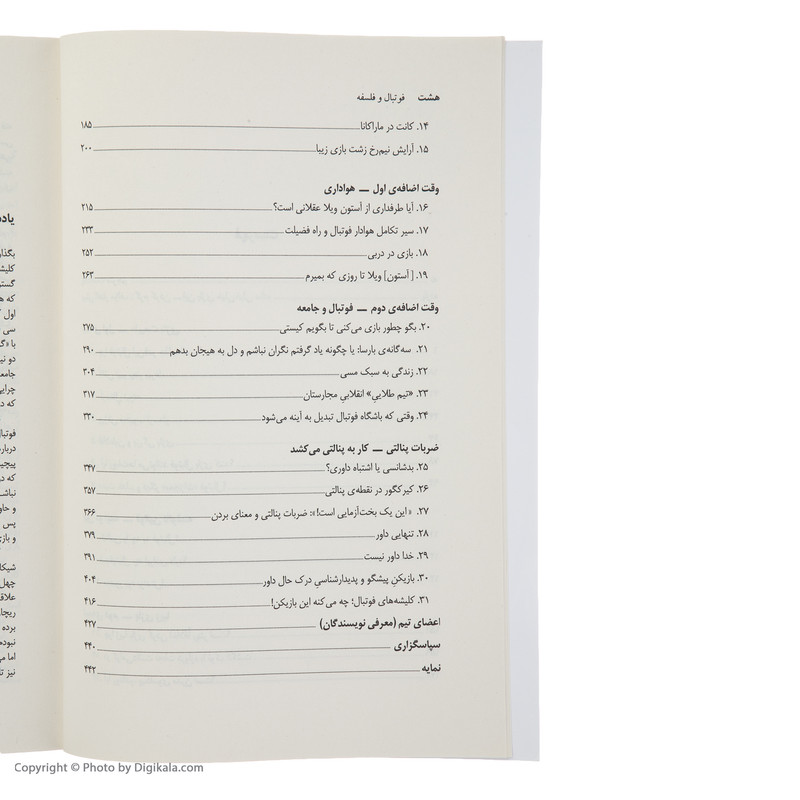 هشت فوتبال و فلسفه
۱۴. کانت در ماراکانا ۱۸۵
۱۵. آرایش نیم‌رخ زشت بازی زیبا ۲۰۰
وقت اضافه‌ی اول — هواداری
۱۶. آیا طرفداری از استون ویلا عقلانی است؟ ۲۱۵
۱۷. سیر تکامل هوادار فوتبال و راه فضیلت ۲۳۳
۱۸. بازی در دربی ۲۵۲
۱۹. [استون] ویلا تا روزی که بمیرم ۲۶۳
وقت اضافه‌ی دوم — فوتبال و جامعه
۲۰. بگو چطور بازی می‌کنی تا بگویم کیستی ۲۷۵
۲۱. سه‌گانه‌ی بارسا: یا چگونه یاد گرفتم نگران نباشم و دل به هیجان بدهم ۲۹۰
۲۲. زندگی به سبک مسی ۳۰۴
۲۳. «تیم طلایی» انقلابی مجارستان ۳۱۷
۲۴. وقتی که باشگاه فوتبال تبدیل به آینه می‌شود ۳۳۰
ضربات پنالتی — کار به پنالتی می‌کشد
۲۵. بدشانسی یا اشتباه داوری؟ ۳۴۷
۲۶. کیرکگور در نقطه‌ی پنالتی ۳۵۷
۲۷. «این یک بخت‌آزمایی است!»: ضربات پنالتی و معنای بردن ۳۶۶
۲۸. تنهایی داور ۳۷۹
۲۹. خدا داور نیست ۳۹۱
۳۰. بازیکن پیشگو و پدیدارشناسی درک حال داور ۴۰۴
۳۱. کلیشه‌های فوتبال؛ چه می‌کنه این بازیکن! ۴۱۶
اعضای تیم (معرفی نویسندگان) ۴۲۷
سپاسگزاری ۴۴۰
نمایه ۴۴۲
Copyright © Photo by Digikala.com